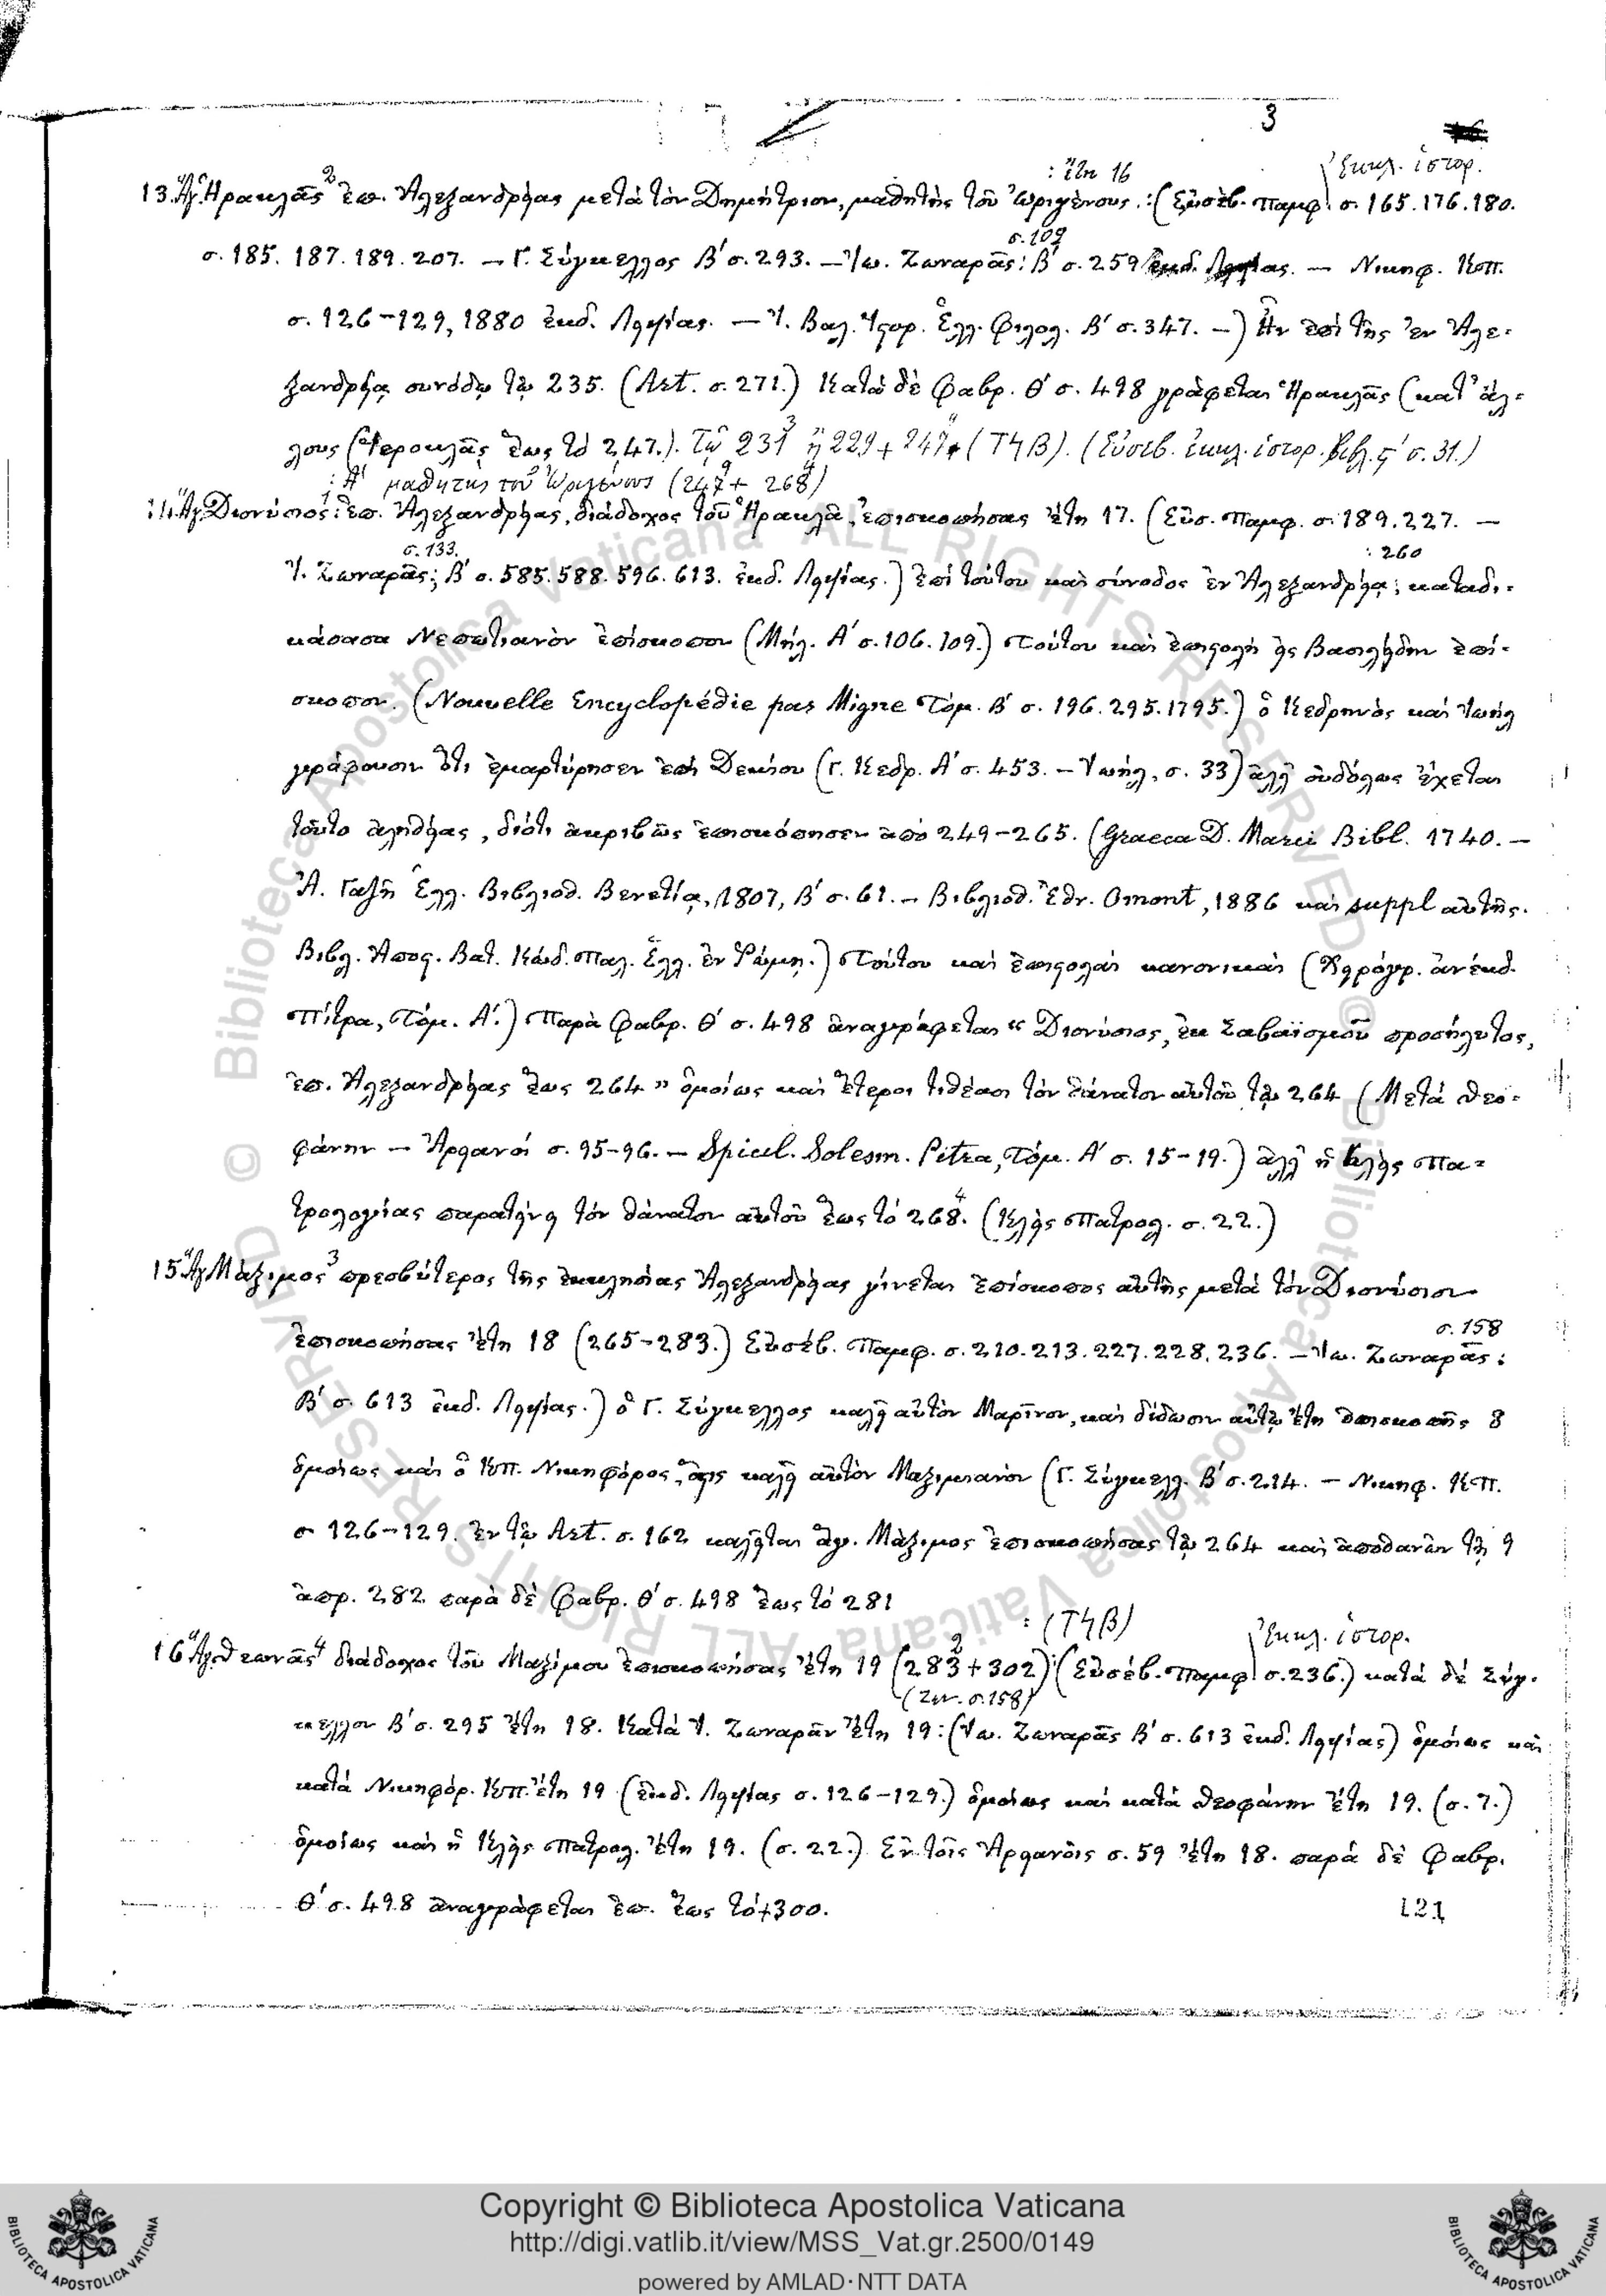 3
: ἔτη 16 ἐκκλ. ἱστορ.
13. Ἅγ. Ἡρακλᾶς 2 ἐπ. Ἀλεξανδρείας μετὰ τὸν Δημήτριον, μαθητὴς τοῦ Ὠριγένους. :( Εὐσέβ. Παμφ. σ. 165. 176. 180.
σ. 109
σ. 185. 187. 189. 207. — Γ. Σύγκελλος Β΄ σ. 293. — Ἰω. Ζωναρᾶς: Β΄ σ. 259 — Νικηφ. Κπ.
σ. 126-129, 1880 ἐκδ. Λειψίας. — Ἰ. Βαλ. Ἱστορ. Ἑλλ. Φιλολ. Β΄ σ. 347. —) Ἦν ἐπὶ τῆς ἐν Ἀλε-
ξανδρείᾳ συνόδῳ τῷ 235. (Art. σ. 271.) Κατὰ δὲ Φαβρ. Θ΄ σ. 498 γράφεται Ἡρακλᾶς (κατ' ἄλ-
λους Ἱεροκλᾶς ἕως τὸ 247.). Τῷ 231 ἢ 229 + 247 (Τ4β). (Εὐσεβ. ἐκκλ. ἱστορ. βιβλ. ς΄ σ. 31.)
: Α΄ μαθητὴς τοῦ Ὠριγένους (247 + 268)
14. Ἅγ. Διονύσιος: ἐπ. Ἀλεξανδρείας, διάδοχος τοῦ Ἡρακλᾶ, ἐπισκοπήσας ἔτη 17. (Εὐσ. Παμφ. σ. 189. 227. —
σ. 133. : 260
Ἰ. Ζωναρᾶς; Β΄ σ. 585. 588. 596. 613. ἐκδ. Λειψίας.) ἐπὶ τούτου καὶ σύνοδος ἐν Ἀλεξανδρείᾳ; καταδι-
κάσασα Νεπωτιανὸν ἐπίσκοπον (Μήλ. Α΄ σ. 106. 109.) Τούτου καὶ ἐπιστολὴ εἰς Βασιλείδην ἐπί-
σκοπον. (Nouvelle Encyclopédie par Migne Τόμ. Β΄ σ. 196. 295. 1795.) ὁ Κεδρηνὸς καὶ Ἰωὴλ
γράφουσιν ὅτι ἐμαρτύρησεν ἐπὶ Δεκίου (Γ. Κεδρ. Α΄ σ. 453. — Ἰωήλ, σ. 33) ἀλλ' οὐδόλως ἔχεται
τοῦτο ἀληθείας, διότι ἀκριβῶς ἐπισκόπησεν ἀπὸ 249-265. (Graeca D. Marci Bibl. 1740. —
Ἀ. Γαζῆ Ἑλλ. Βιβλιοθ. Βενετίᾳ, 1807, Β΄ σ. 61. — Βιβλιοθ. Ἐθν. Omont, 1886 καὶ suppl αὐτῆς.
Βιβλ. Ἀποστ. Βατ. Κώδ. Παλ. Ἑλλ. ἐν Ῥώμῃ.) Τούτου καὶ ἐπιστολαὶ κανονικαὶ (Χειρόγρ. ἀνέκδ.
Πίτρα, Τόμ. Α΄.) Παρὰ Φαβρ. Θ΄ σ. 498 ἀναγράφεται « Διονύσιος, ἐκ Σαβαϊσμοῦ προσήλυτος,
ἐπ. Ἀλεξανδρείας ἕως 264 » ὁμοίως καὶ ἕτεροι τιθέασι τὸν θάνατον αὐτοῦ τῷ 264 (Μετὰ Θεο-
φάνην — Ἀρφανοί σ. 95-96. — Spicil. Solesm. Pitra, Τόμ. Α΄ σ. 15-19.) ἀλλ' ἡ Κλεὶς Πα-
τρολογίας παρατείνει τὸν θάνατον αὐτοῦ ἕως τὸ 268. (Κλεὶς Πατρολ. σ. 22.)
15 Ἅγ Μάξιμος 3 πρεσβύτερος τῆς ἐκκλησίας Ἀλεξανδρείας γίνεται ἐπίσκοπος αὐτῆς μετὰ τὸν Διονύσιον
σ. 158
ἐπισκοπήσας ἔτη 18 (265-283.) Εὐσέβ. Παμφ. σ. 210. 213. 227. 228. 236. — Ἰω. Ζωναρᾶς:
Β΄ σ. 613 ἐκδ. Λειψίας.) ὁ Γ. Σύγκελλος καλεῖ αὐτὸν Μαρῖνον, καὶ δίδωσιν αὐτῷ ἔτη ἐπισκοπῆς 8
ὁμοίως καὶ ὁ Κπ. Νικηφόρος, ὅστις καλεῖ αὐτὸν Μαξιμιανὸν (Γ. Σύγκελλ. Β΄ σ. 214. — Νικηφ. Κπ.
σ 126-129. ἐν τῷ Art. σ. 162 καλεῖται ἅγ. Μάξιμος ἐπισκοπήσας τῷ 264 καὶ ἀποθανὼν τῇ 9
ἀπρ. 282 παρὰ δὲ Φαβρ. Θ΄ σ. 498 ἕως τὸ 281
: (Τ4β) ἐκκλ. ἱστορ.
16 Ἅγ. Θεωνᾶς 4 διάδοχος τοῦ Μαξίμου ἐπισκοπήσας ἔτη 19 (283 + 302): (Εὐσέβ. Παμφ. σ. 236.) κατὰ δὲ Σύγ-
(Ζων. σ. 158)
κελλον Β΄ σ. 295 ἔτη 18. Κατὰ Ἰ. Ζωναρᾶν ἔτη 19: (Ἰω. Ζωναρᾶς Β΄ σ. 613 ἐκδ. Λειψίας) ὁμοίως καὶ
κατὰ Νικηφόρ. Κπ. ἔτη 19 (ἐκδ. Λειψίας σ. 126-129.) ὁμοίως καὶ κατὰ Θεοφάνην ἔτη 19. (σ. 7.)
ὁμοίως καὶ ἡ Κλεὶς Πατρολ. ἔτη 19. (σ. 22.) Ἐν τοῖς Ἀρφανοῖς σ. 59 ἔτη 18. παρὰ δὲ Φαβρ.
Θ΄ σ. 498 ἀναγράφεται ἐπ. ἕως τὸ +300.
121
© Biblioteca Apostolica Vaticana ALL RIGHTS RESERVED
Copyright © Biblioteca Apostolica Vaticana
http://digi.vatlib.it/view/MSS_Vat.gr.2500/0149
powered by AMLAD·NTT DATA
BIBLIOTECA APOSTOLICA VATICANA
BIBLIOTECA APOSTOLICA VATICANA